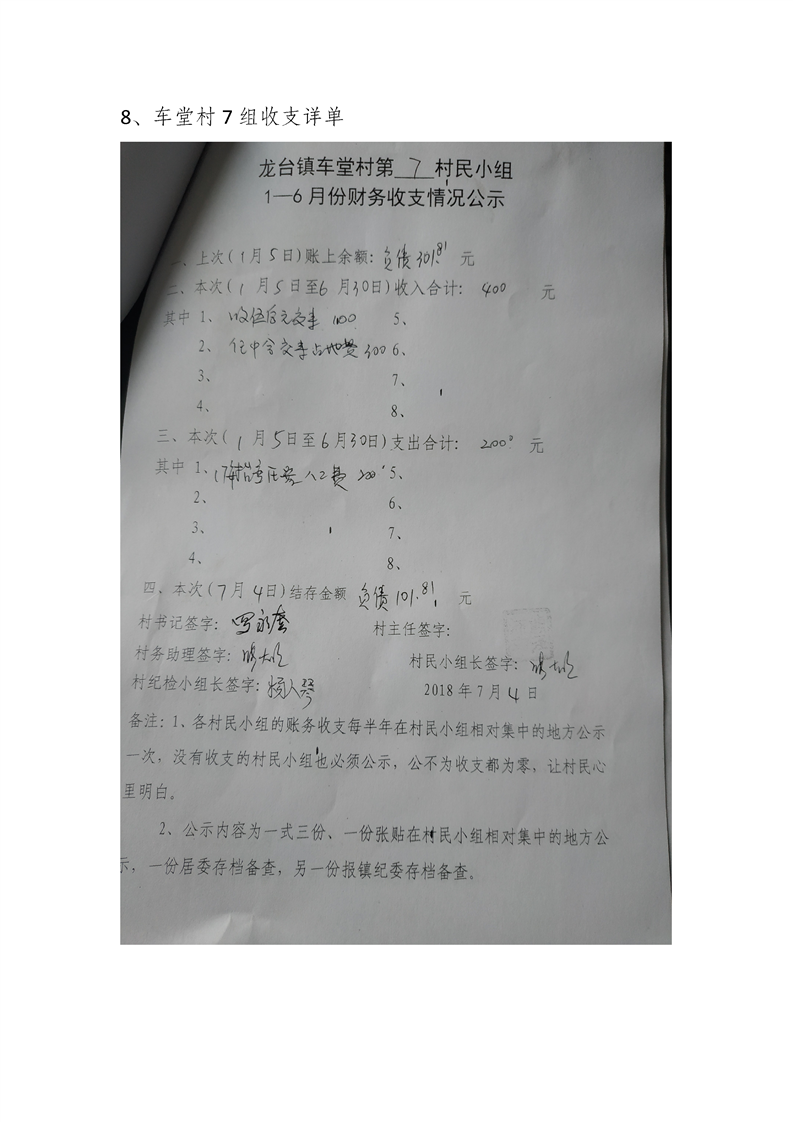 8、车堂村7组收支详单
龙台镇车堂村第 7 村民小组
1—6月份财务收支情况公示
一、上次(1月5日)账上余额:负债301.81 元
二、本次(1月5日至6月30日)收入合计: 400 元
其中 1、收伍 元交来 100 5、
2、任中会交来占地费 300 6、
3、 7、
4、 8、
三、本次(1月5日至6月30日)支出合计: 200 元
其中 1、 人工费 200 5、
2、 6、
3、 7、
4、 8、
四、本次(7月4日)结存金额 负债101.81 元
村书记签字: 村主任签字:
村务助理签字: 村民小组长签字:
村纪检小组长签字: 2018年7月4日
备注:1、各村民小组的账务收支每半年在村民小组相对集中的地方公示
一次,没有收支的村民小组也必须公示,公不为收支都为零,让村民心
里明白。
2、公示内容为一式三份、一份张贴在村民小组相对集中的地方公
示,一份居委存档备查,另一份报镇纪委存档备查。